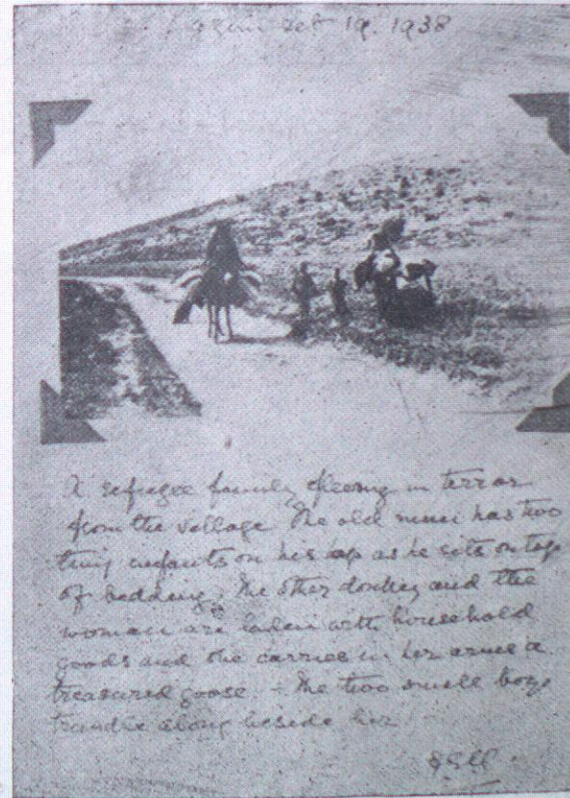 19. 1938
A refugee family fleeing in terror
from the village The old man has two
tiny infants on his lap as he sits on top
of bedding; The other donkey and the
woman are laden with household
goods and she carries in her arms a
treasured goose – The two small boys
trundle along beside her